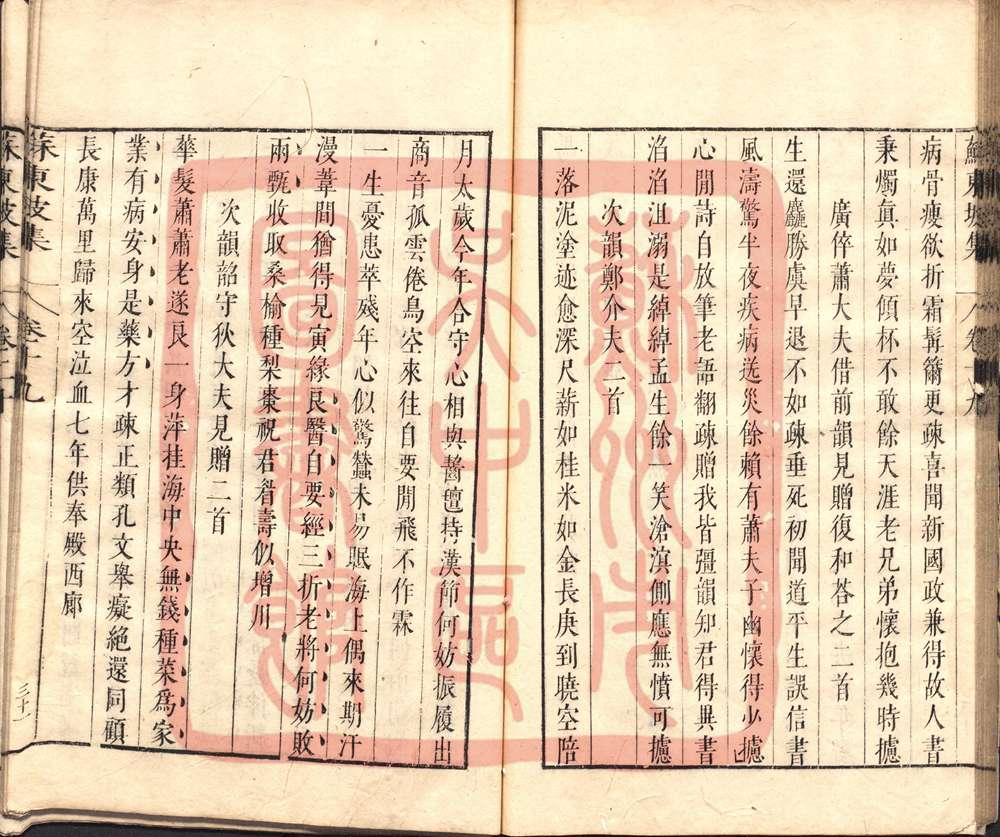 蘇東坡集 卷十九
病骨瘦欲折霜髯籋更疎喜聞新國政兼得故人書
秉燭真如夢傾杯不敢餘天涯老兄弟懷抱幾時攄
廣倅蕭大夫借前韻見贈復和荅之二首
生還麤勝虞早退不如疎垂死初聞道平生誤信書
風濤驚半夜疾病送災餘賴有蕭夫子幽懷得少攄
心閒詩自放筆老語翻疎贈我皆彊韻知君得異書
滔滔沮溺是綽綽孟生餘一笑滄溟側應無憤可攄
次韻鄭介夫二首
一落泥塗迹愈深尺薪如桂米如金長庚到曉空陪
月太歲今年合守心相與齧氊持漢節何妨振履出
商音孤雲倦鳥空來往自要閒飛不作霖
一生憂患萃殘年心似驚蠶未易眠海上偶來期汗
漫葦間猶得見寅緣良醫自要經三折老將何妨敗
兩甄收取桑榆種梨棗祝君眉壽似增川
次韻韶守狄大夫見贈二首
華髮蕭蕭老遂良一身萍挂海中央無錢種菜爲家
業有病安身是藥方才疎正類孔文舉癡絕還同顧
長康萬里歸來空泣血七年供奉殿西廊
蘇東坡集 卷十九
三十一